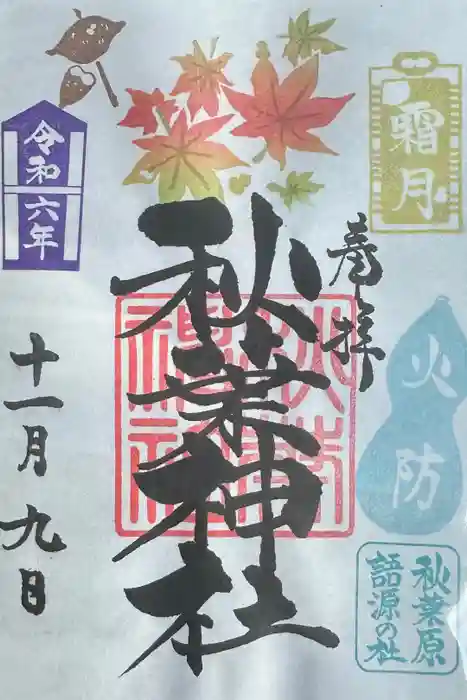 奉拝
秋葉神社
令和六年
十一月九日
霜月
火防
秋葉原
語源の社